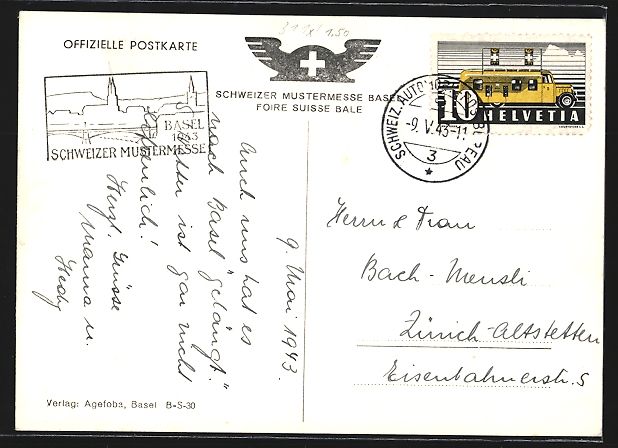 31 1/8 1.50
OFFIZIELLE POSTKARTE
SCHWEIZER MUSTERMESSE BASEL
FOIRE SUISSE BALE
BASEL
1943
SCHWEIZER MUSTERMESSE
SCHWEIZ. AUTOMOBIL-POSTBUREAU
-9. V. 43-11
3
10
HELVETIA
9. Mai 1943.
Auch uns hat es
nach Basel "gelängt."
Wetter ist gar nicht
Herzl. Grüsse
Mama u.
Hedy
Herrn & Frau
Bach-Meusli
Zürich-Altstetten
Eisenbahnerstr. 5
Verlag: Agefoba, Basel B-S-30